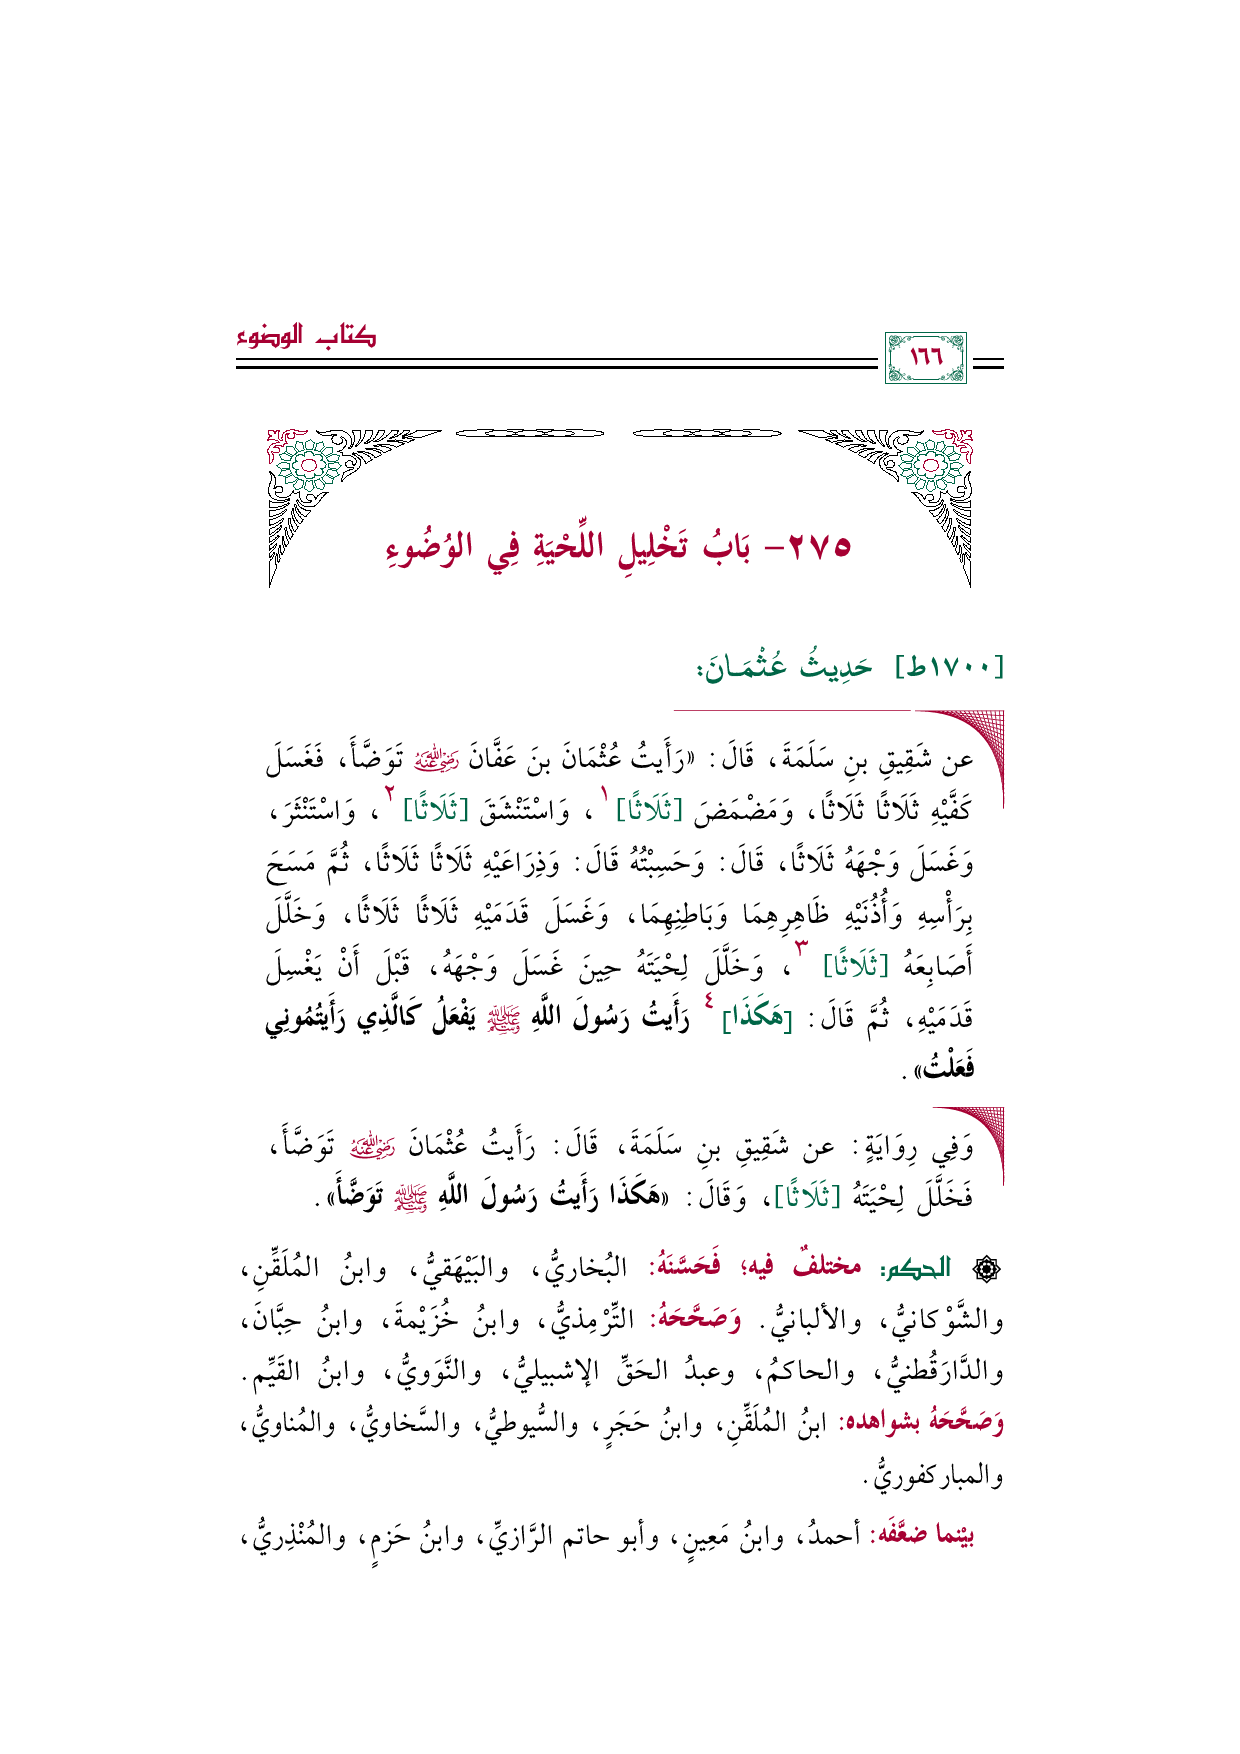 كتاب الوضوء
١٦٦
٢٧٥- بَابُ تَخْلِيلِ اللِّحْيَةِ فِي الوُضُوءِ
[١٧٠٠ط] حَدِيثُ عُثْمَـانَ:
عن شَقِيقِ بنِ سَلَمَةَ، قَالَ: «رَأَيتُ عُثْمَانَ بنَ عَفَّانَ رَضِيَ اللَّهُ عَنْهُ تَوَضَّأَ، فَغَسَلَ
كَفَّيْهِ ثَلَاثًا ثَلَاثًا، وَمَضْمَضَ [ثَلَاثًا]١، وَاسْتَنْشَقَ [ثَلَاثًا]٢، وَاسْتَنْثَرَ،
وَغَسَلَ وَجْهَهُ ثَلَاثًا، قَالَ: وَحَسِبْتُهُ قَالَ: وَذِرَاعَيْهِ ثَلَاثًا ثَلَاثًا، ثُمَّ مَسَحَ
بِرَأْسِهِ وَأُذُنَيْهِ ظَاهِرِهِمَا وَبَاطِنِهِمَا، وَغَسَلَ قَدَمَيْهِ ثَلَاثًا ثَلَاثًا، وَخَلَّلَ
أَصَابِعَهُ [ثَلَاثًا]٣، وَخَلَّلَ لِحْيَتَهُ حِينَ غَسَلَ وَجْهَهُ، قَبْلَ أَنْ يَغْسِلَ
قَدَمَيْهِ، ثُمَّ قَالَ: [هَكَذَا]٤ رَأَيتُ رَسُولَ اللَّهِ ﷺ يَفْعَلُ كَالَّذِي رَأَيتُمُونِي
فَعَلْتُ».
وَفِي رِوَايَةٍ: عن شَقِيقِ بنِ سَلَمَةَ، قَالَ: رَأَيتُ عُثْمَانَ رَضِيَ اللَّهُ عَنْهُ تَوَضَّأَ،
فَخَلَّلَ لِحْيَتَهُ [ثَلَاثًا]، وَقَالَ: «هَكَذَا رَأَيتُ رَسُولَ اللَّهِ ﷺ تَوَضَّأَ».
الحكم: مختلفٌ فيه؛ فَحَسَّنَهُ: البُخاريُّ، والبَيْهَقيُّ، وابنُ المُلَقِّنِ،
والشَّوْكانيُّ، والألبانيُّ. وَصَحَّحَهُ: التِّرْمِذيُّ، وابنُ خُزَيْمةَ، وابنُ حِبَّانَ،
والدَّارَقُطنيُّ، والحاكمُ، وعبدُ الحَقِّ الإشبيليُّ، والنَّوَويُّ، وابنُ القَيِّم.
وَصَحَّحَهُ بشواهده: ابنُ المُلَقِّنِ، وابنُ حَجَرٍ، والسُّيوطيُّ، والسَّخاويُّ، والمُناويُّ،
والمباركفوريُّ.
بيْنما ضعَّفَه: أحمدُ، وابنُ مَعِينٍ، وأبو حاتم الرَّازيِّ، وابنُ حَزمٍ، والمُنْذِريُّ،